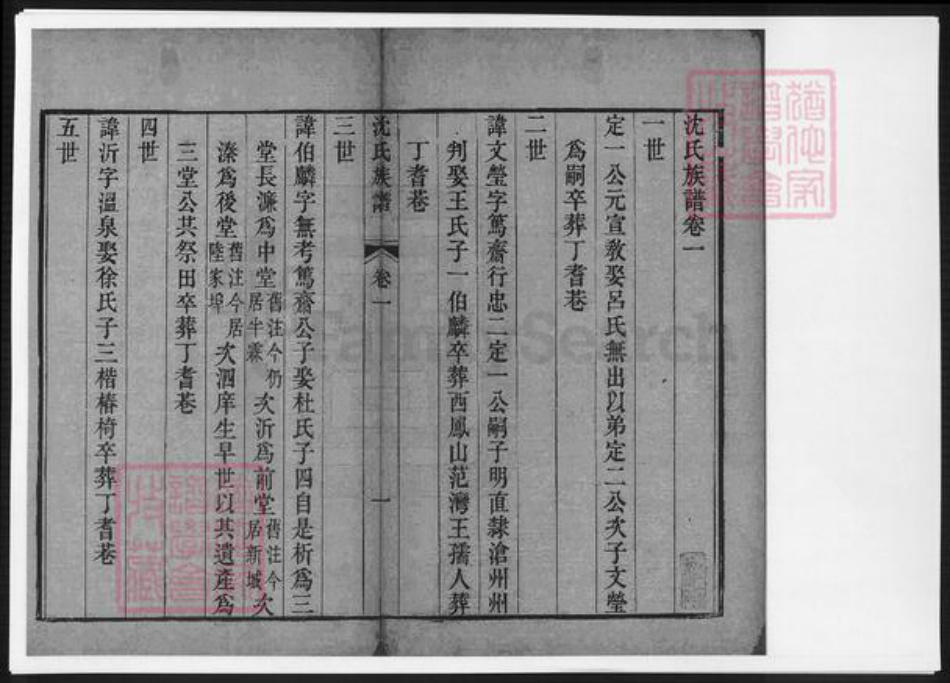 沈氏族譜卷一
一世
定一公元宣敎娶呂氏無出以弟定二公次子文瑩
爲嗣卒葬丁耆巷
二世
諱文瑩字篤齋行忠二定一公嗣子明直隸滄州州
判娶王氏子一伯麟卒葬西鳳山范灣王孺人葬
丁耆巷
沈氏族譜 卷一 一
三世
諱伯麟字無考篤齋公子娶杜氏子四自是析爲三
堂長濂爲中堂舊注今仍居半霖次沂爲前堂舊注今居新城次
溱爲後堂舊注今居陸家埠次泗庠生早世以其遺產爲
三堂公共祭田卒葬丁耆巷
四世
諱沂字溫泉娶徐氏子三楷椿椅卒葬丁耆巷
五世
FamilySearch